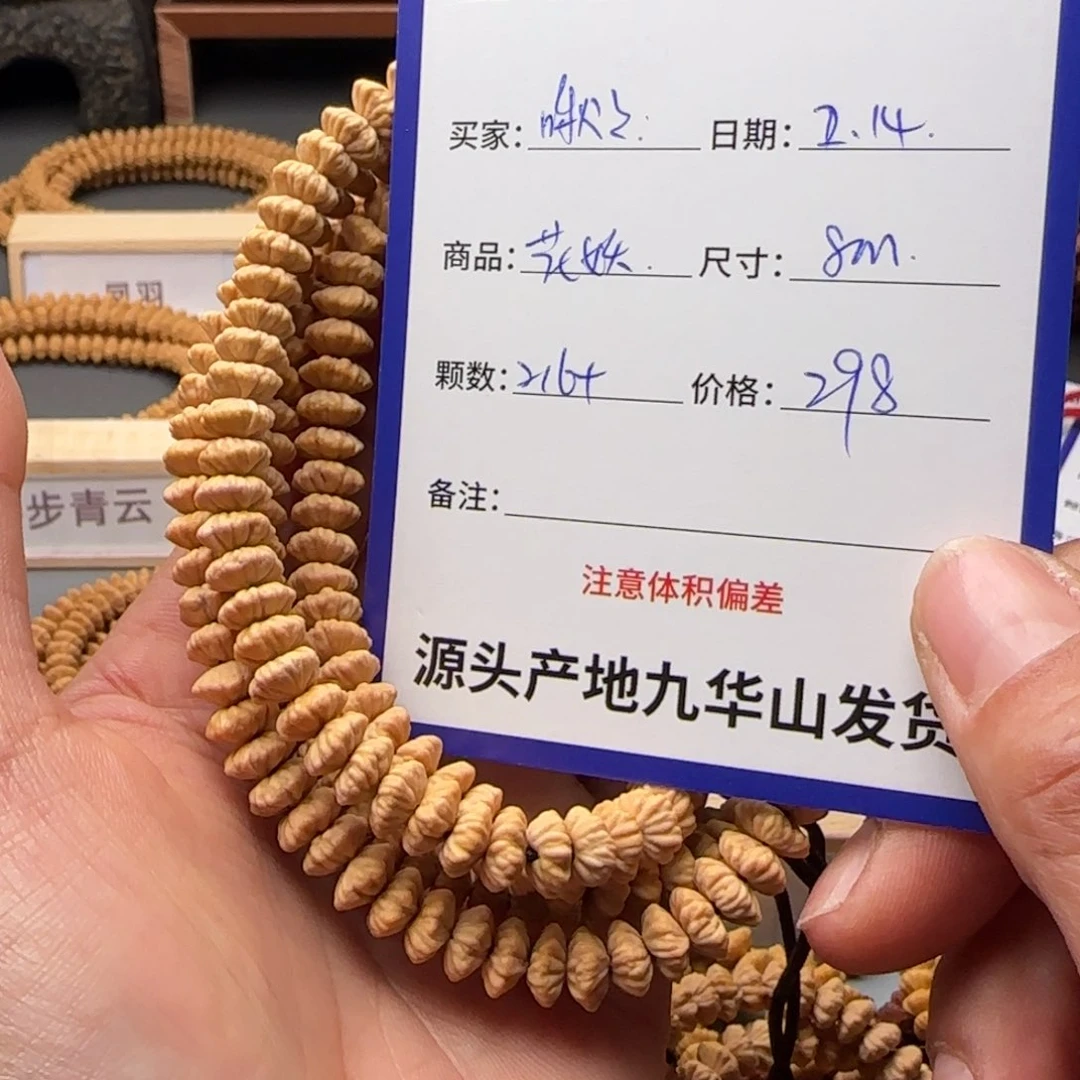 买家： 日期：2.14.
商品：花妖. 尺寸：8m.
颗数：216+ 价格：298
备注：
注意体积偏差
源头产地九华山发货
凤羽
步青云